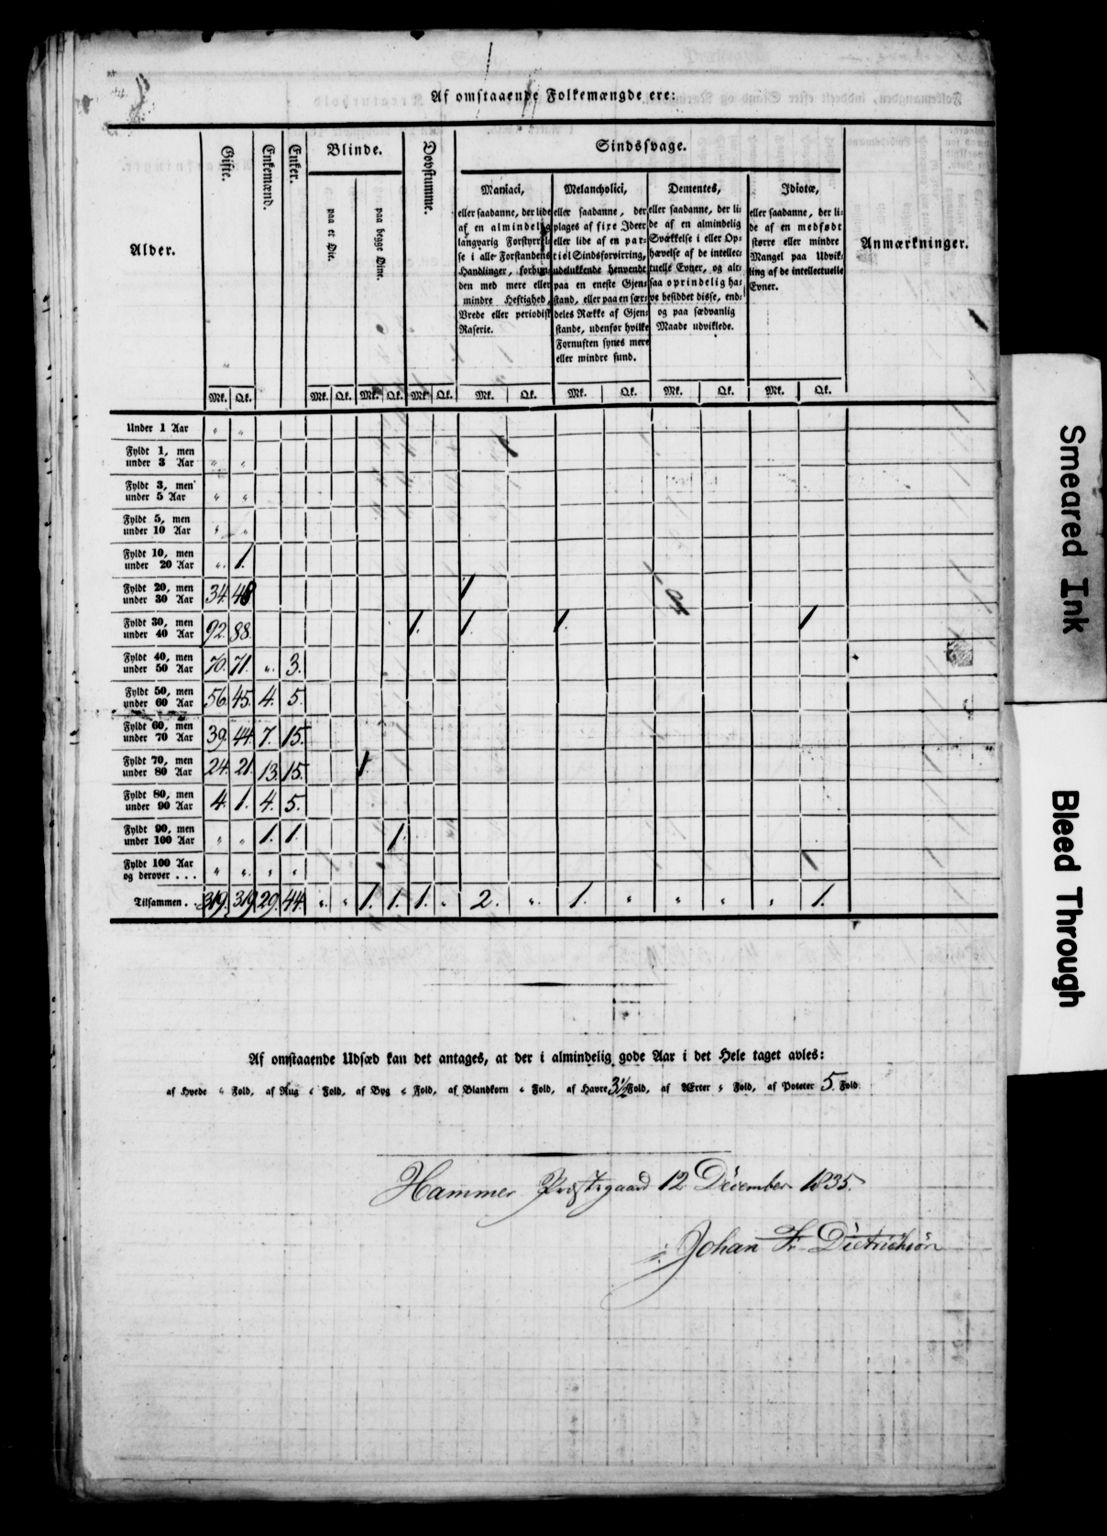 Af omstaaende Folkemængde ere:
Alder.
Gifte.
Enkemænd.
Enker.
Blinde.
paa et Øie.
paa begge Øine.
Døvstumme.
Sindssvage.
Maniaci,
eller saadanne, der lide
af en almindelig
langvarig Forstyrrel-
se i alle Forstandens
Handlinger, forbun-
den med mere eller
mindre Heftighed,
Vrede eller periodisk
Raserie.
Melancholici,
eller saadanne, der
plages af fixe Ideer
eller lide af en par-
tiel Sindsforvirring,
udelukkende henvendt
paa en eneste Gjen-
stand, eller paa en sær-
deles Række af Gjen-
stande, udenfor hvilke
Fornuften synes mere
eller mindre sund.
Dementes,
eller saadanne, der li-
de af en almindelig
Svækkelse i eller Op-
hævelse af de intellec-
tuelle Evner, og alt-
saa oprindelig ha-
ve besiddet disse, end-
og paa sædvanlig
Maade udviklede.
Idiotæ,
eller saadanne, der li-
de af en medfødt
større eller mindre
Mangel paa Udvik-
ling af de intellectuelle
Evner.
Anmærkninger.
Mk. Qk. Mk. Qk. Mk. Qk. Mk. Qk. Mk. Qk. Mk. Qk. Mk. Qk. Mk. Qk.
Under 1 Aar " "
Fyldt 1, men
under 3 Aar " "
Fyldt 3, men
under 5 Aar " "
Fyldt 5, men
under 10 Aar " "
Fyldt 10, men
under 20 Aar " 1.
Fyldt 20, men
under 30 Aar 34. 48 1
Fyldt 30, men
under 40 Aar 92. 88. 1. 1. 1. 1
Fyldt 40, men
under 50 Aar 70. 71. " 3.
Fyldt 50, men
under 60 Aar 56. 45. 4. 5.
Fyldt 60, men
under 70 Aar 39. 44. 7. 15.
Fyldt 70, men
under 80 Aar 24. 21. 13. 15. 1.
Fyldt 80, men
under 90 Aar 4. 1. 4. 5.
Fyldt 90, men
under 100 Aar " " 1. 1. 1.
Fyldt 100 Aar
og derover . . . " " " "
Tilsammen . . 319. 319. 29. 44. " " 1. 1. 1. " 2. " 1. " " " " 1.
Af omstaaende Udsæd kan det antages, at der i almindelig gode Aar i det Hele taget avles:
af Hvede " Fold, af Rug " Fold, af Byg " Fold, af Blandkorn " Fold, af Havre 3½ Fold, af Erter " Fold, af Poteter 5 Fold.
Hammer Præstegaard 12 December 1835.
Johan Fr. Dietrichson
Smeared Ink
Bleed Through